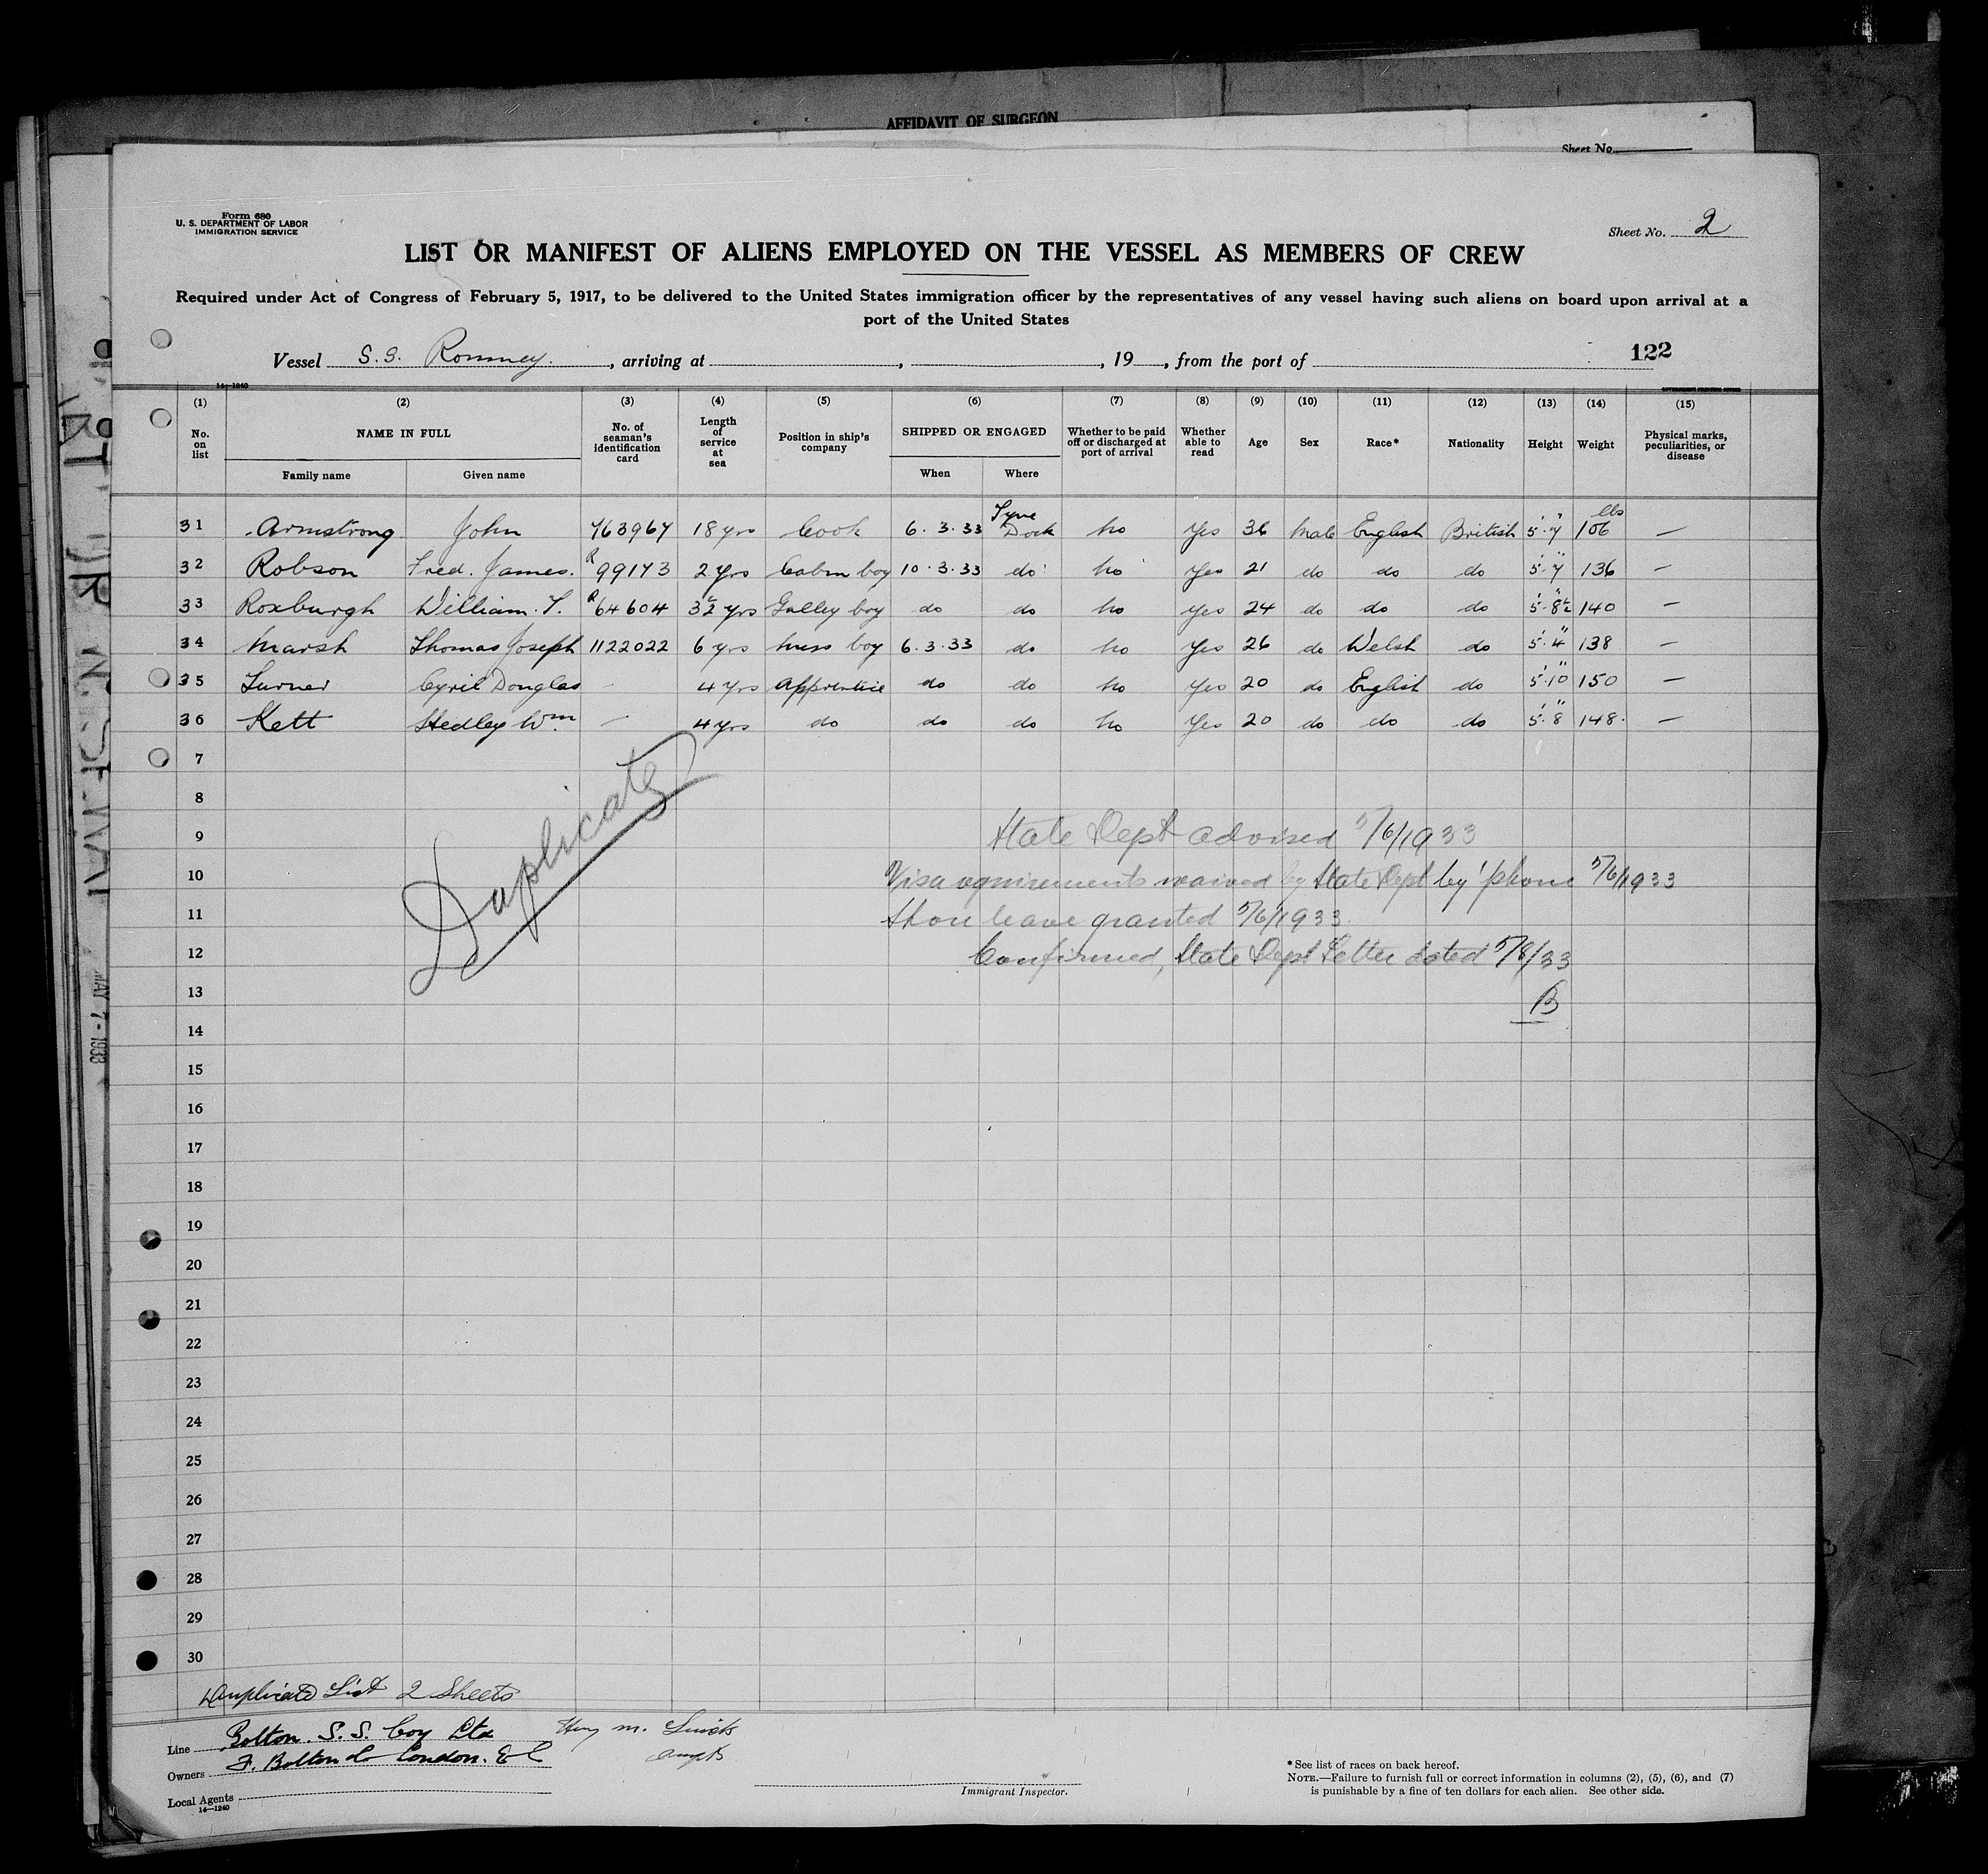 AFFIDAVIT OF SURGEON
Sheet No.
Form 680
U. S. DEPARTMENT OF LABOR
IMMIGRATION SERVICE
Sheet No. 2
LIST OR MANIFEST OF ALIENS EMPLOYED ON THE VESSEL AS MEMBERS OF CREW
Required under Act of Congress of February 5, 1917, to be delivered to the United States immigration officer by the representatives of any vessel having such aliens on board upon arrival at a
port of the United States
Vessel S.S. Romney., arriving at , , 19 , from the port of 122
14—1240
(1) (2) (3) (4) (5) (6) (7) (8) (9) (10) (11) (12) (13) (14) (15)
No. on list NAME IN FULL No. of seaman's identification card Length of service at sea Position in ship's company SHIPPED OR ENGAGED Whether to be paid off or discharged at port of arrival Whether able to read Age Sex Race* Nationality Height Weight Physical marks, peculiarities, or disease
Family name Given name When Where
31 Armstrong John 763967 18 yrs Cook 6.3.33 Tyne Dock no Yes 36 Male English British 5'.7" 106 lbs —
32 Robson Fred. James. R 99173 2 yrs Cabin boy 10.3.33 do no Yes 21 do do do 5'.7" 136 —
33 Roxburgh William. T. R 64604 3½ yrs Galley boy do do no Yes 24 do do do 5'.8½" 140 —
34 Marsh Thomas Joseph 1122022 6 yrs Mess boy 6.3.33 do no Yes 26 do Welsh do 5'.4" 138 —
35 Turner Cyril Douglas — 4 yrs Apprentice do do no Yes 20 do English do 5'.10" 150 —
36 Kett Hedley Wm. — 4 yrs do do do no Yes 20 do do do 5'.8" 148. —
7
8
Duplicate
9 State Dept advised 5/6/1933
10 Visa requirements waived by State Dept by 'phone 5/6/1933
11 Shore leave granted 5/6/1933.
12 Confirmed, State Dept Letter dated 5/8/33
13 B
14
15
16
17
18
19
20
21
22
23
24
25
26
27
28
29
30
Duplicate List 2 Sheets
Line Bolton. S.S. Coy Ltd
Owners F. Bolton & Co London. E C
Local Agents
14—1240
Immigrant Inspector.
* See list of races on back hereof.
NOTE.—Failure to furnish full or correct information in columns (2), (5), (6), and (7)
is punishable by a fine of ten dollars for each alien. See other side.
MAY 7 - 1933